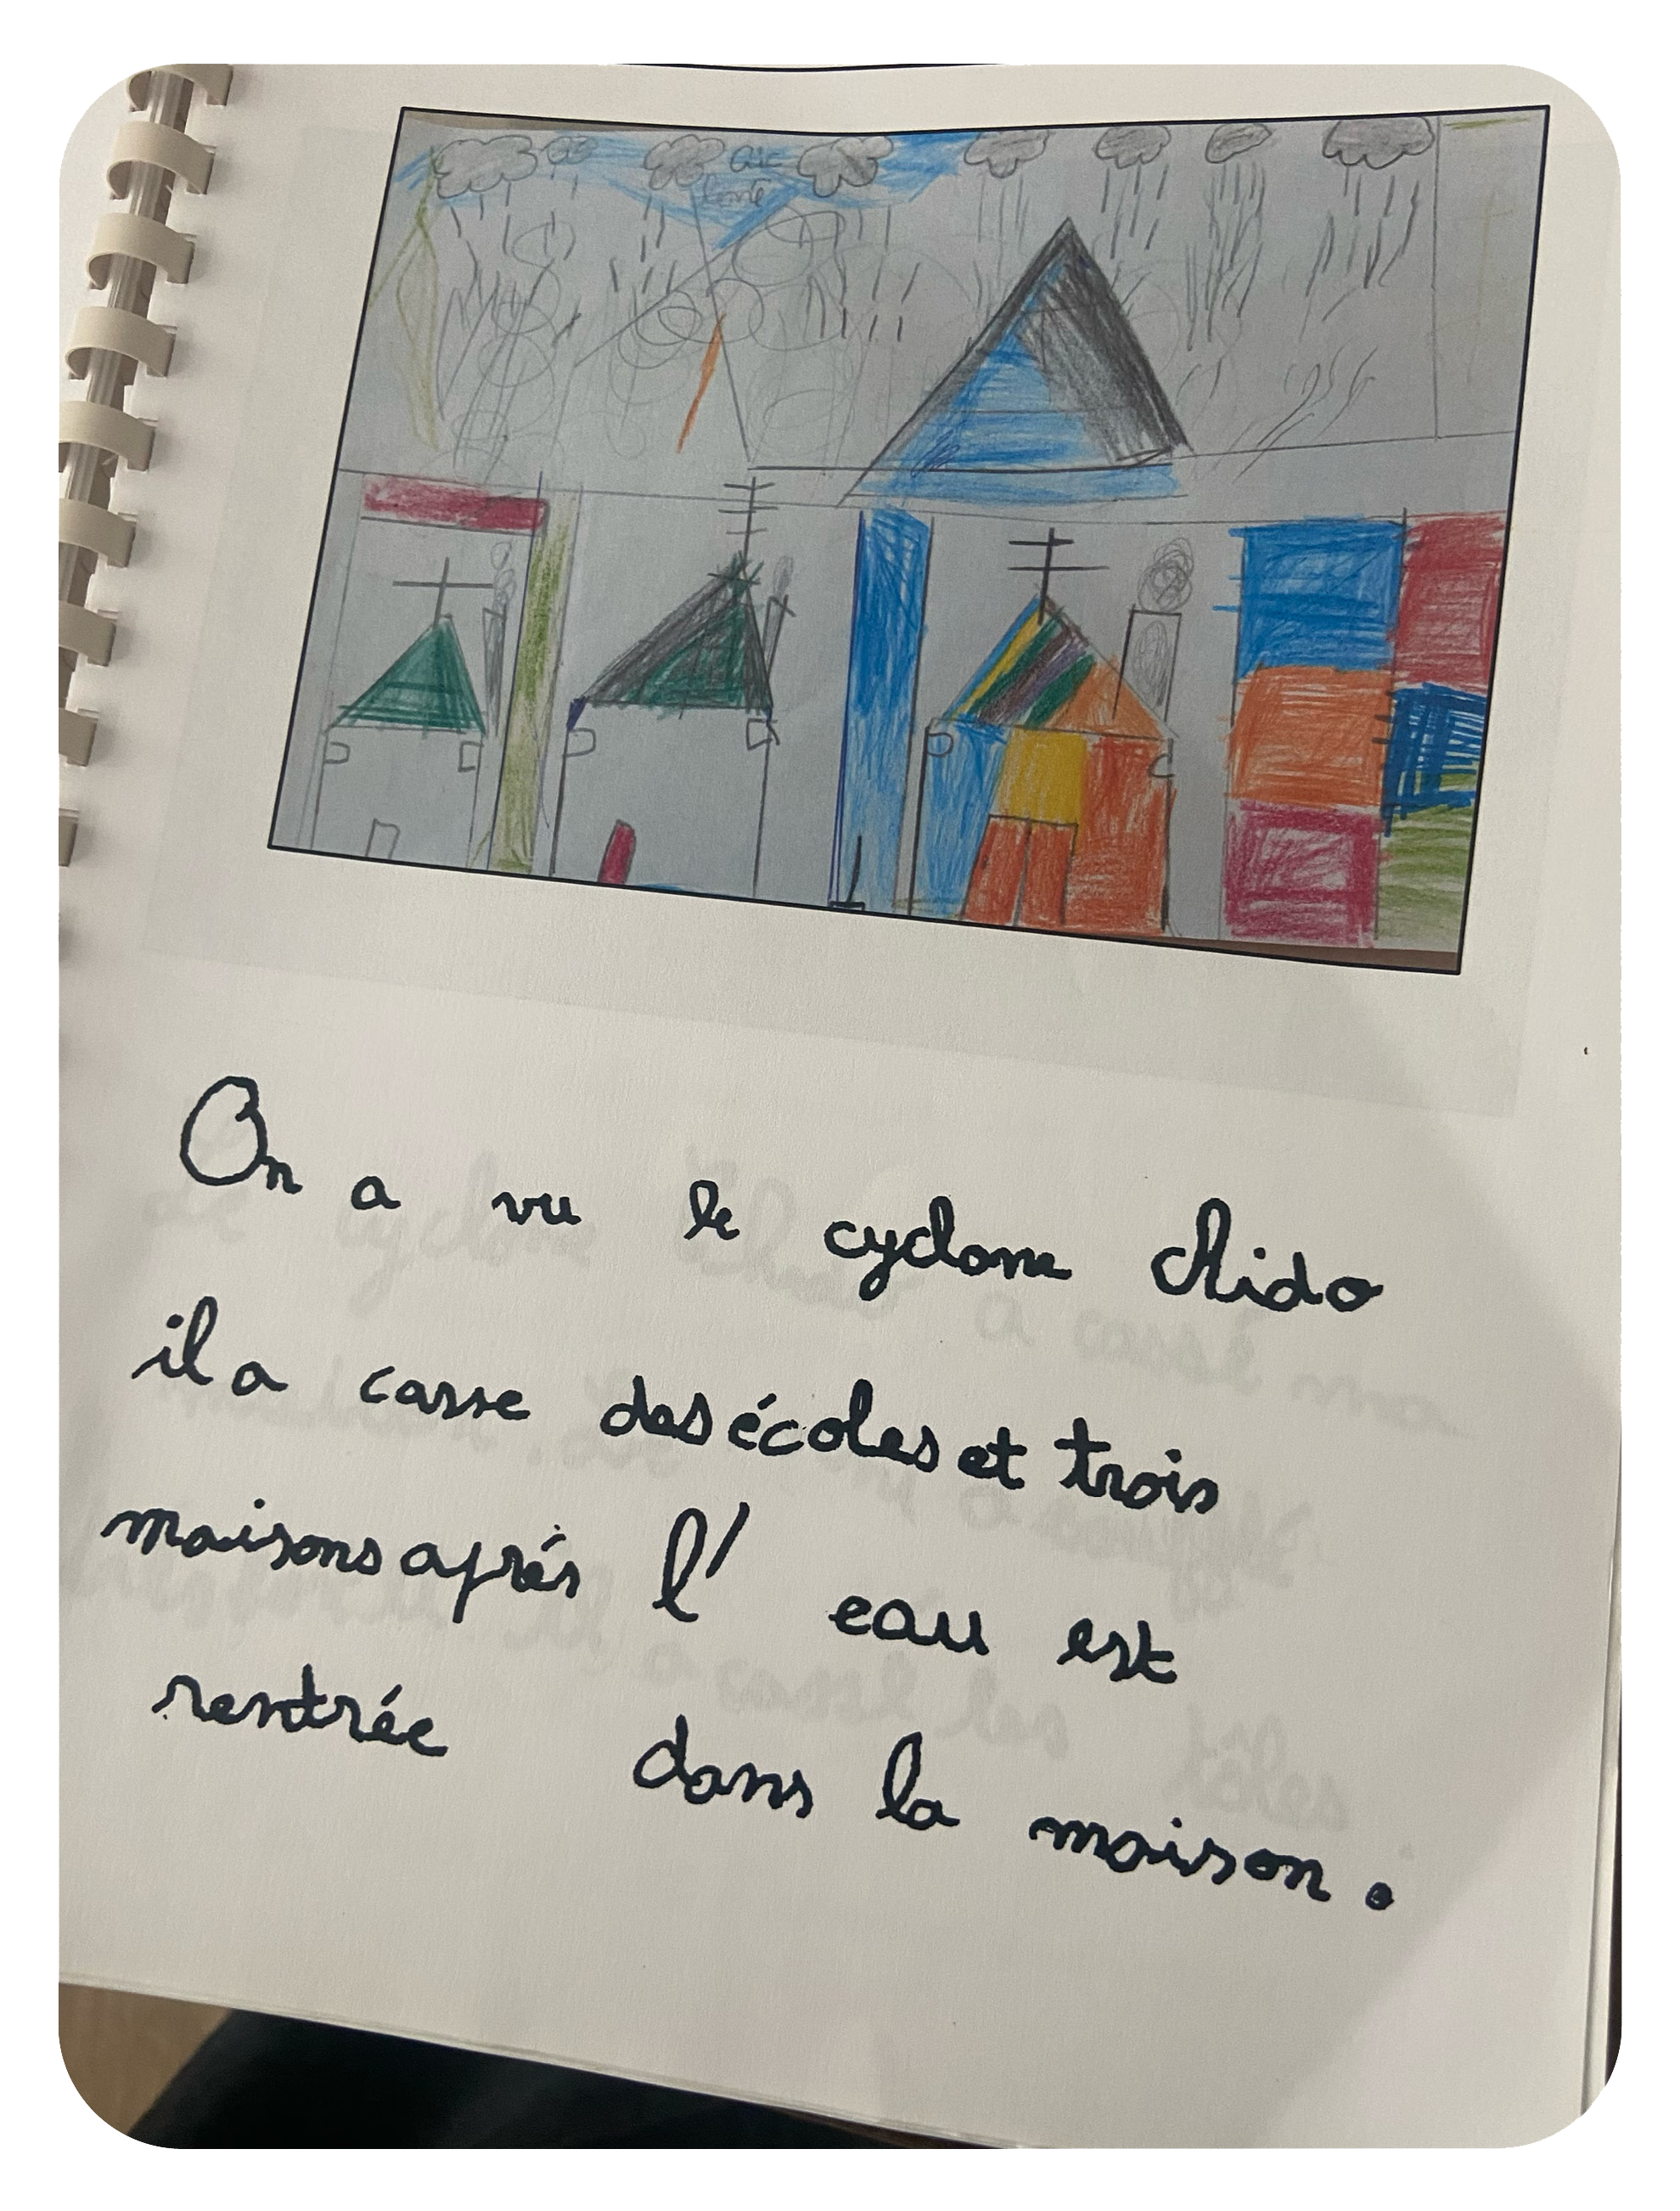 On a vu le cyclone chido
il a casse des écoles et trois
maisons aprés l' eau est
rentrée dans la maison.